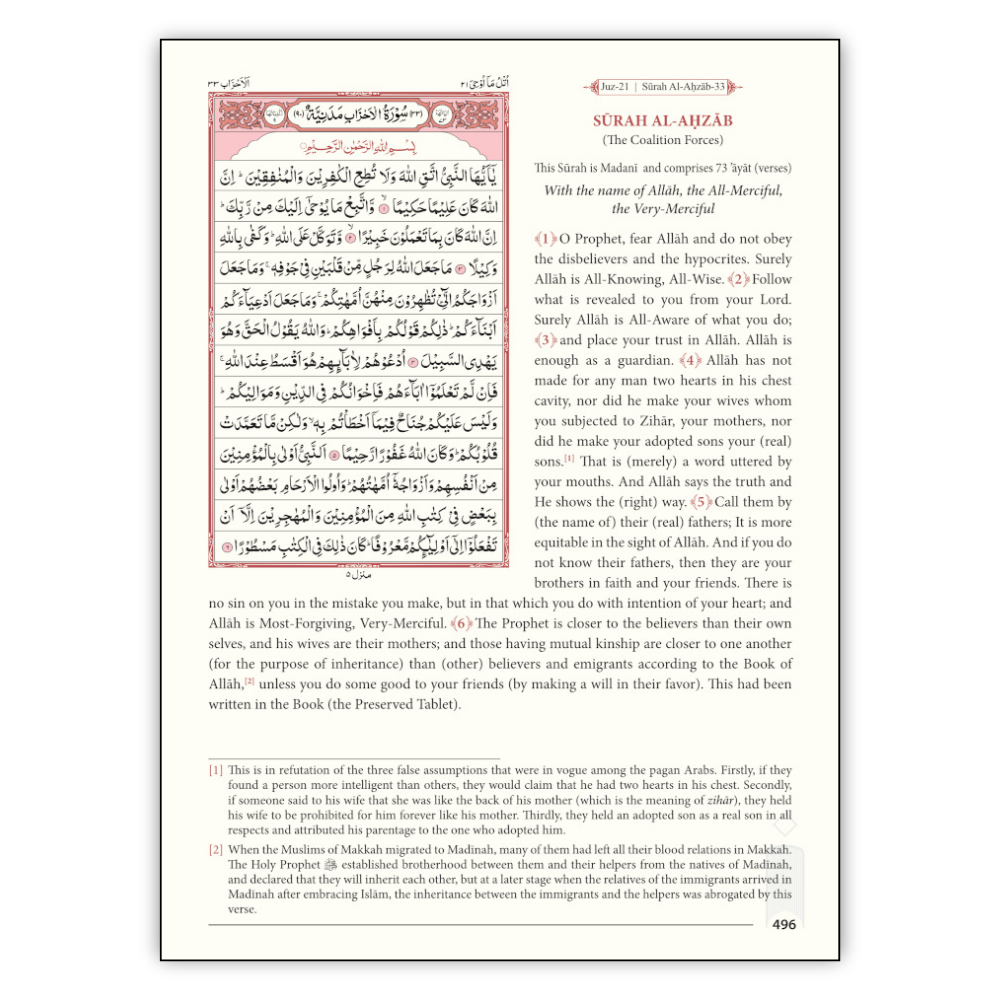 اَلْاَحْزَاب ٣٣
اُتْلُ مَآ اُوْحِیَ ٢١
(٣٣) سُوْرَةُ الْاَحْزَابِ مَدَنِيَّةٌ (٩٠)
بِسْمِ اللهِ الرَّحْمٰنِ الرَّحِيْمِ
يٰٓاَيُّهَا النَّبِيُّ اتَّقِ اللهَ وَلَا تُطِعِ الْكٰفِرِيْنَ وَالْمُنٰفِقِيْنَ ؕ اِنَّ
اللهَ كَانَ عَلِيْمًا حَكِيْمًا ۙ‏﴿١﴾ وَّاتَّبِعْ مَا يُوْحٰٓى اِلَيْكَ مِنْ رَّبِّكَ ؕ
اِنَّ اللهَ كَانَ بِمَا تَعْمَلُوْنَ خَبِيْرًا ۙ‏﴿٢﴾ وَّتَوَكَّلْ عَلَى اللهِ ؕ وَكَفٰى بِاللهِ
وَكِيْلًا ﴿٣﴾ مَا جَعَلَ اللهُ لِرَجُلٍ مِّنْ قَلْبَيْنِ فِيْ جَوْفِهٖ ۚ وَمَا جَعَلَ
اَزْوَاجَكُمُ الّٰٓـِٔيْ تُظٰهِرُوْنَ مِنْهُنَّ اُمَّهٰتِكُمْ ۚ وَمَا جَعَلَ اَدْعِيَآءَكُمْ
اَبْنَآءَكُمْ ؕ ذٰلِكُمْ قَوْلُكُمْ بِاَفْوَاهِكُمْ ؕ وَاللهُ يَقُوْلُ الْحَقَّ وَهُوَ
يَهْدِي السَّبِيْلَ ﴿٤﴾ اُدْعُوْهُمْ لِاٰبَآئِهِمْ هُوَ اَقْسَطُ عِنْدَ اللهِ ۚ
فَاِنْ لَّمْ تَعْلَمُوْٓا اٰبَآءَهُمْ فَاِخْوَانُكُمْ فِي الدِّيْنِ وَمَوَالِيْكُمْ ؕ
وَلَيْسَ عَلَيْكُمْ جُنَاحٌ فِيْمَآ اَخْطَاْتُمْ بِهٖ ۙ وَلٰكِنْ مَّا تَعَمَّدَتْ
قُلُوْبُكُمْ ؕ وَكَانَ اللهُ غَفُوْرًا رَّحِيْمًا ﴿٥﴾ اَلنَّبِيُّ اَوْلٰى بِالْمُؤْمِنِيْنَ
مِنْ اَنْفُسِهِمْ وَاَزْوَاجُهٗٓ اُمَّهٰتُهُمْ ؕ وَاُولُوا الْاَرْحَامِ بَعْضُهُمْ اَوْلٰى
بِبَعْضٍ فِيْ كِتٰبِ اللهِ مِنَ الْمُؤْمِنِيْنَ وَالْمُهٰجِرِيْنَ اِلَّآ اَنْ
تَفْعَلُوْٓا اِلٰٓى اَوْلِيٰٓئِكُمْ مَّعْرُوْفًا ؕ كَانَ ذٰلِكَ فِي الْكِتٰبِ مَسْطُوْرًا ﴿٦﴾
منزل ٥
Juz-21 | Sūrah Al-Aḥzāb-33
SŪRAH AL-AḤZĀB
(The Coalition Forces)
This Sūrah is Madanī and comprises 73 ’āyāt (verses)
With the name of Allāh, the All-Merciful,
the Very-Merciful
﴾1﴿ O Prophet, fear Allāh and do not obey
the disbelievers and the hypocrites. Surely
Allāh is All-Knowing, All-Wise. ﴾2﴿ Follow
what is revealed to you from your Lord.
Surely Allāh is All-Aware of what you do;
﴾3﴿ and place your trust in Allāh. Allāh is
enough as a guardian. ﴾4﴿ Allāh has not
made for any man two hearts in his chest
cavity, nor did he make your wives whom
you subjected to Zihār, your mothers, nor
did he make your adopted sons your (real)
sons.[1] That is (merely) a word uttered by
your mouths. And Allāh says the truth and
He shows the (right) way. ﴾5﴿ Call them by
(the name of) their (real) fathers; It is more
equitable in the sight of Allāh. And if you do
not know their fathers, then they are your
brothers in faith and your friends. There is
no sin on you in the mistake you make, but in that which you do with intention of your heart; and
Allāh is Most-Forgiving, Very-Merciful. ﴾6﴿ The Prophet is closer to the believers than their own
selves, and his wives are their mothers; and those having mutual kinship are closer to one another
(for the purpose of inheritance) than (other) believers and emigrants according to the Book of
Allāh,[2] unless you do some good to your friends (by making a will in their favor). This had been
written in the Book (the Preserved Tablet).
[1] This is in refutation of the three false assumptions that were in vogue among the pagan Arabs. Firstly, if they
found a person more intelligent than others, they would claim that he had two hearts in his chest. Secondly,
if someone said to his wife that she was like the back of his mother (which is the meaning of zihār), they held
his wife to be prohibited for him forever like his mother. Thirdly, they held an adopted son as a real son in all
respects and attributed his parentage to the one who adopted him.
[2] When the Muslims of Makkah migrated to Madīnah, many of them had left all their blood relations in Makkah.
The Holy Prophet ﷺ established brotherhood between them and their helpers from the natives of Madīnah,
and declared that they will inherit each other, but at a later stage when the relatives of the immigrants arrived in
Madīnah after embracing Islām, the inheritance between the immigrants and the helpers was abrogated by this
verse.
496